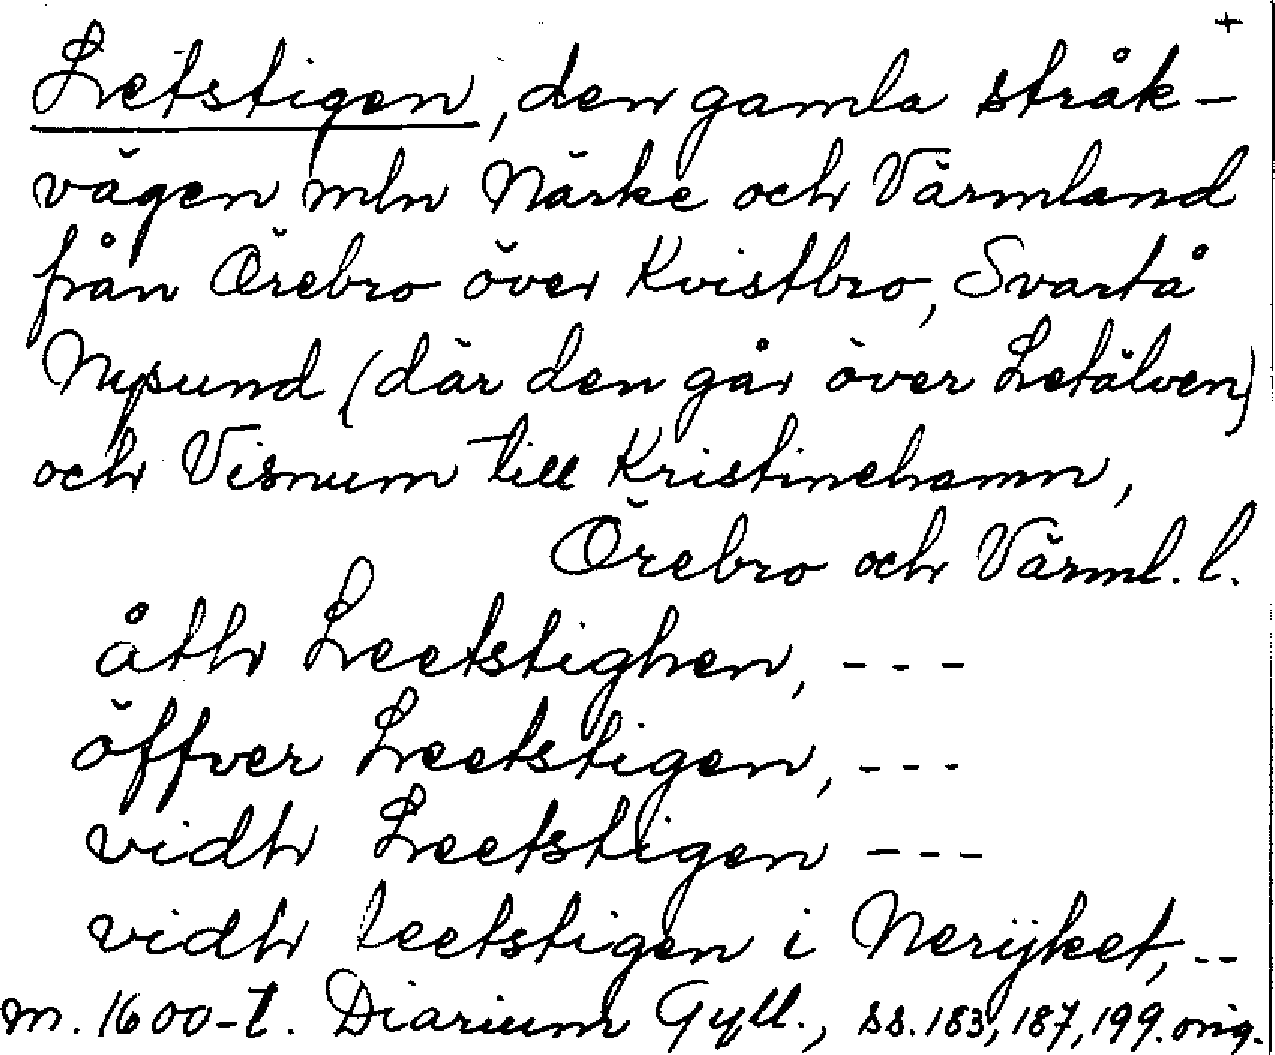 +
Letstigen, den gamla stråk-
vägen mln Närke och Värmland
från Örebro över Kvistbro, Svartå
Nysund (där den går över Letälven)
och Visnum till Kristinehamn,
Örebro och Värml. l.
åth Leetstighen, ---
öffver Leetstigen, ---
vidh Leetstigen ---
vidh leetstigen i Nerijket, --
m. 1600-t. Diarium Gyll., ss. 183, 187, 199. orig.